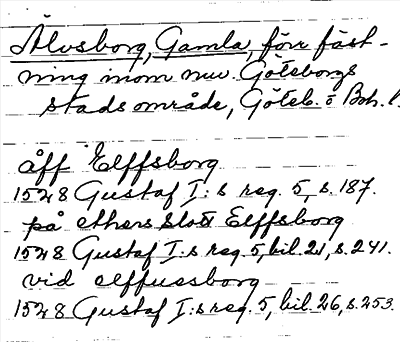 Älvsborg, Gamla, förr fäst-
ning inom nuv. Göteborgs
stads område, Göteb. o Boh. l.
åff Elffsborg
1528 Gustaf I:s reg. 5, s. 187.
på ethers slott Elffsborg
1528 Gustaf I:s reg. 5, bil. 21, s. 241.
vid elffuesborg
1528 Gustaf I:s reg. 5, bil. 26, s. 253.